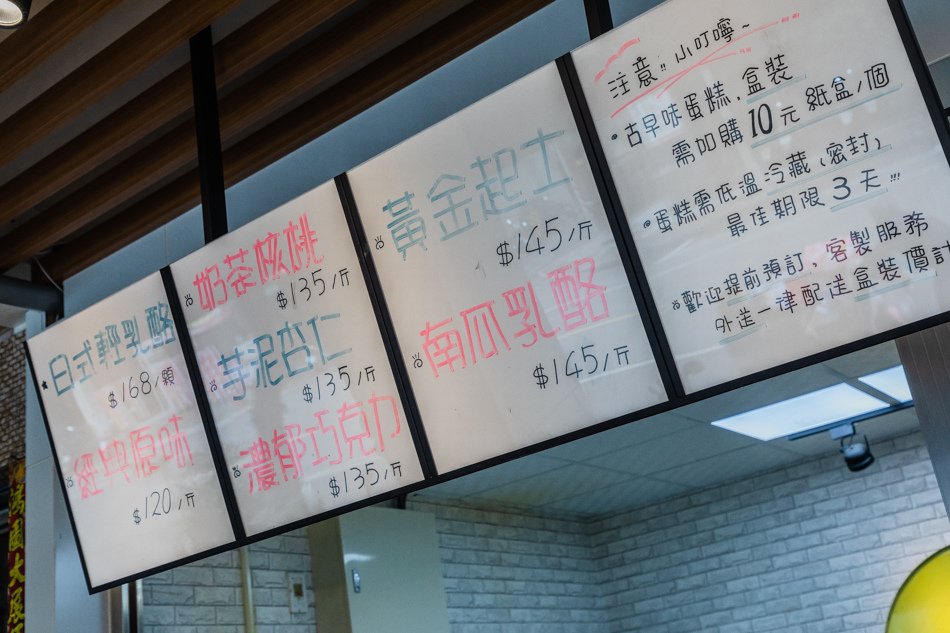 日式輕乳酪
$168/顆
經典原味
$120/斤
奶茶核桃
$135/斤
芋泥杏仁
$135/斤
濃郁巧克力
$135/斤
黃金起士
$145/斤
南瓜乳酪
$145/斤
注意!! 小叮嚀~
古早味蛋糕，盒裝
需加購10元 紙盒/個
蛋糕需低溫冷藏(密封)
最佳期限3天!!!
歡迎提前預訂，客製服務
外送一律配送盒裝價
大展